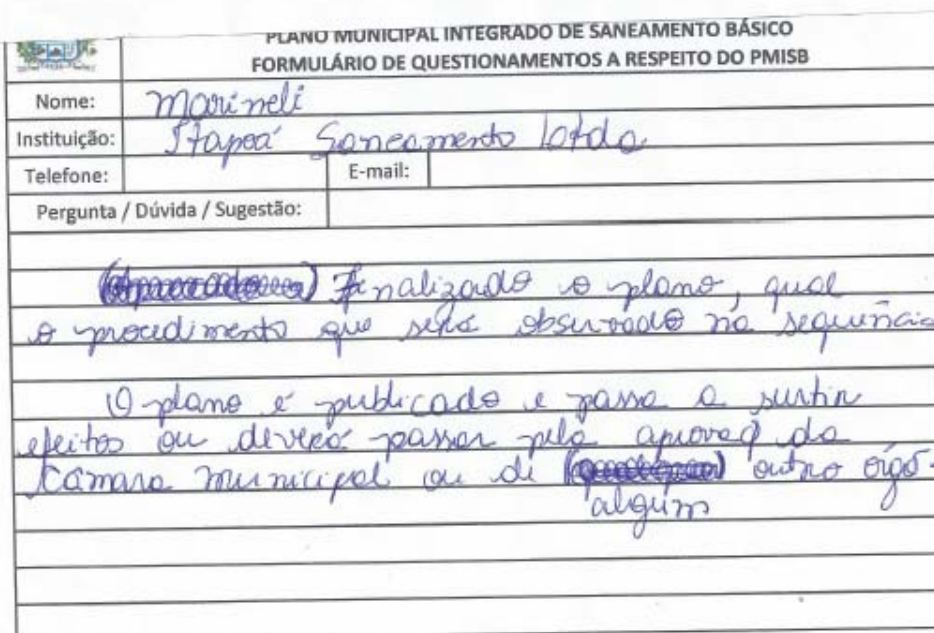 PLANO MUNICIPAL INTEGRADO DE SANEAMENTO BÁSICO
FORMULÁRIO DE QUESTIONAMENTOS A RESPEITO DO PMISB
Nome: Marineli
Instituição: Itapoá Saneamento Ltda
Telefone: E-mail:
Pergunta / Dúvida / Sugestão:
Finalizado o plano, qual
o procedimento que será observado na sequência
O plano é publicado e passa a surtir
efeitos ou deverá passar pela aprovaç da
Câmara Municipal ou de outro orgó-
algum